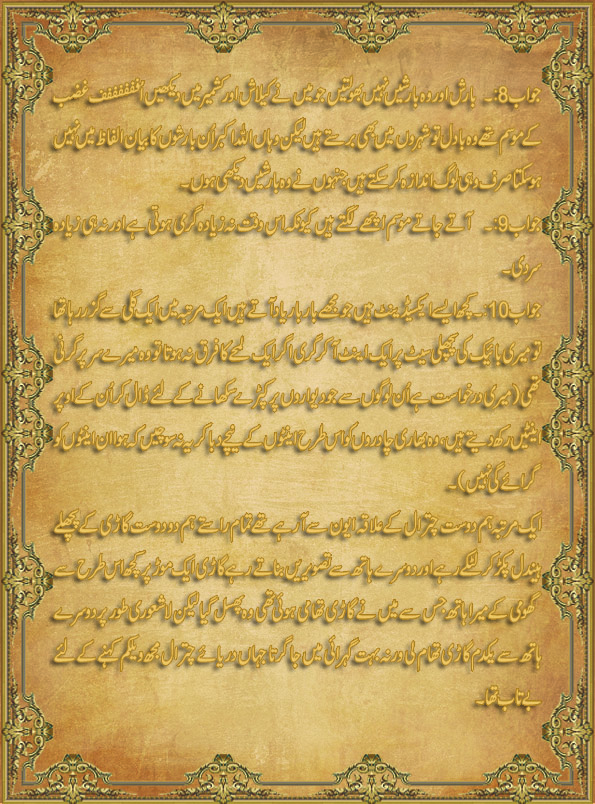 جواب8:۔ بارش اور وہ بارشیں نہیں بھولتیں جو میں نے کیلاش اور کشمیر میں دیکھیں اُففففففف غضب
کے موسم تھے وہ بادل تو شہروں میں بھی برستے ہیں لیکن وہاں اللہ اکبر اُن بارشوں کا بیان الفاظ میں نہیں
ہو سکتا صرف وہی لوگ اندازہ کر سکتے ہیں جنہوں نے وہ بارشیں دیکھی ہوں۔
جواب9:۔ آتے جاتے موسم اچھے لگتے ہیں کیونکہ اس وقت نہ زیادہ گرمی ہوتی ہے اور نہ ہی زیادہ
سردی۔
جواب10:۔ کچھ ایسے ایکسیڈینٹ ہیں جو مجھے بار بار یاد آتے ہیں ایک مرتبہ میں ایک گلی سے گزر رہا تھا
تو میری بائیک کی پچھلی سیٹ پر ایک اینٹ آ کر گری اگر ایک لمحے کا فرق نہ ہوتا تو وہ میرے سر پر گرنی
تھی (میری درخواست ہے اُن لوگوں سے جو دیواروں پر کپڑے سکھانے کے لئے ڈال کر اُن کے اوپر
اینٹیں رکھ دیتے ہیں، وہ بھاری چادروں کو اس طرح اینٹوں کے نیچے دبا کر یہ نہ سوچیں کہ ہوا ان اینٹوں کو
گرائے گی نہیں)۔
ایک مرتبہ ہم دوست چترال کے علاقہ ایون سے آ رہے تھے تمام راستے ہم دو دوست گاڑی کے پچھلے
ہینڈل پکڑ کر لٹکے رہے اور دوسرے ہاتھ سے تصویریں بناتے رہے گاڑی ایک موڑ پر کچھ اس طرح سے
گھومی کے میرا ہاتھ جس سے میں نے گاڑی تھامی ہوئی تھی وہ پھسل گیا لیکن لاشعوری طور پر دوسرے
ہاتھ سے یکدم گاڑی تھام لی ورنہ بہت گہرائی میں جا گرتا جہاں دریائے چترال مجھ ویلکم کہنے کے لئے
بے تاب تھا۔